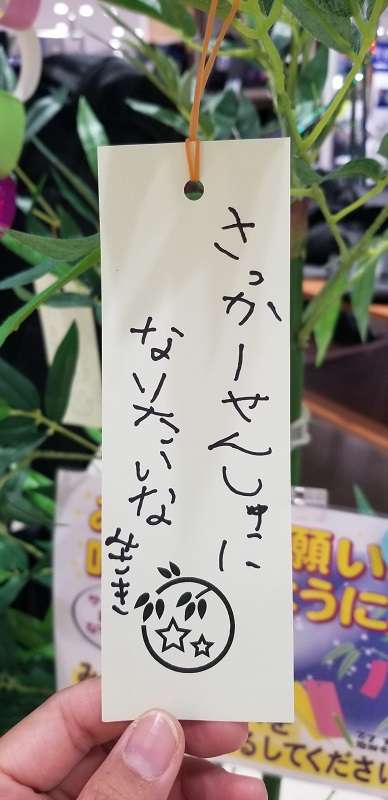 さっかーせんしゅに
なりたいな
みずき
願い
ように
してください